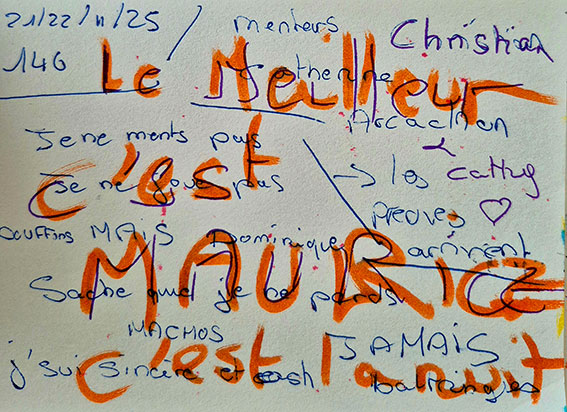 21/22/11/25 / menteurs Christian
146 Catherine
Le Meilleur
Arcachon
Je ne ments pas
c'est
Je ne joue pas → les Cathy
preuves ♡
couffins MAIS Dominique arrivent
MAURICE
Sache que je perds
MACHOS JAMAIS
c'est la nuit
j'suis sincère et cash baltringues